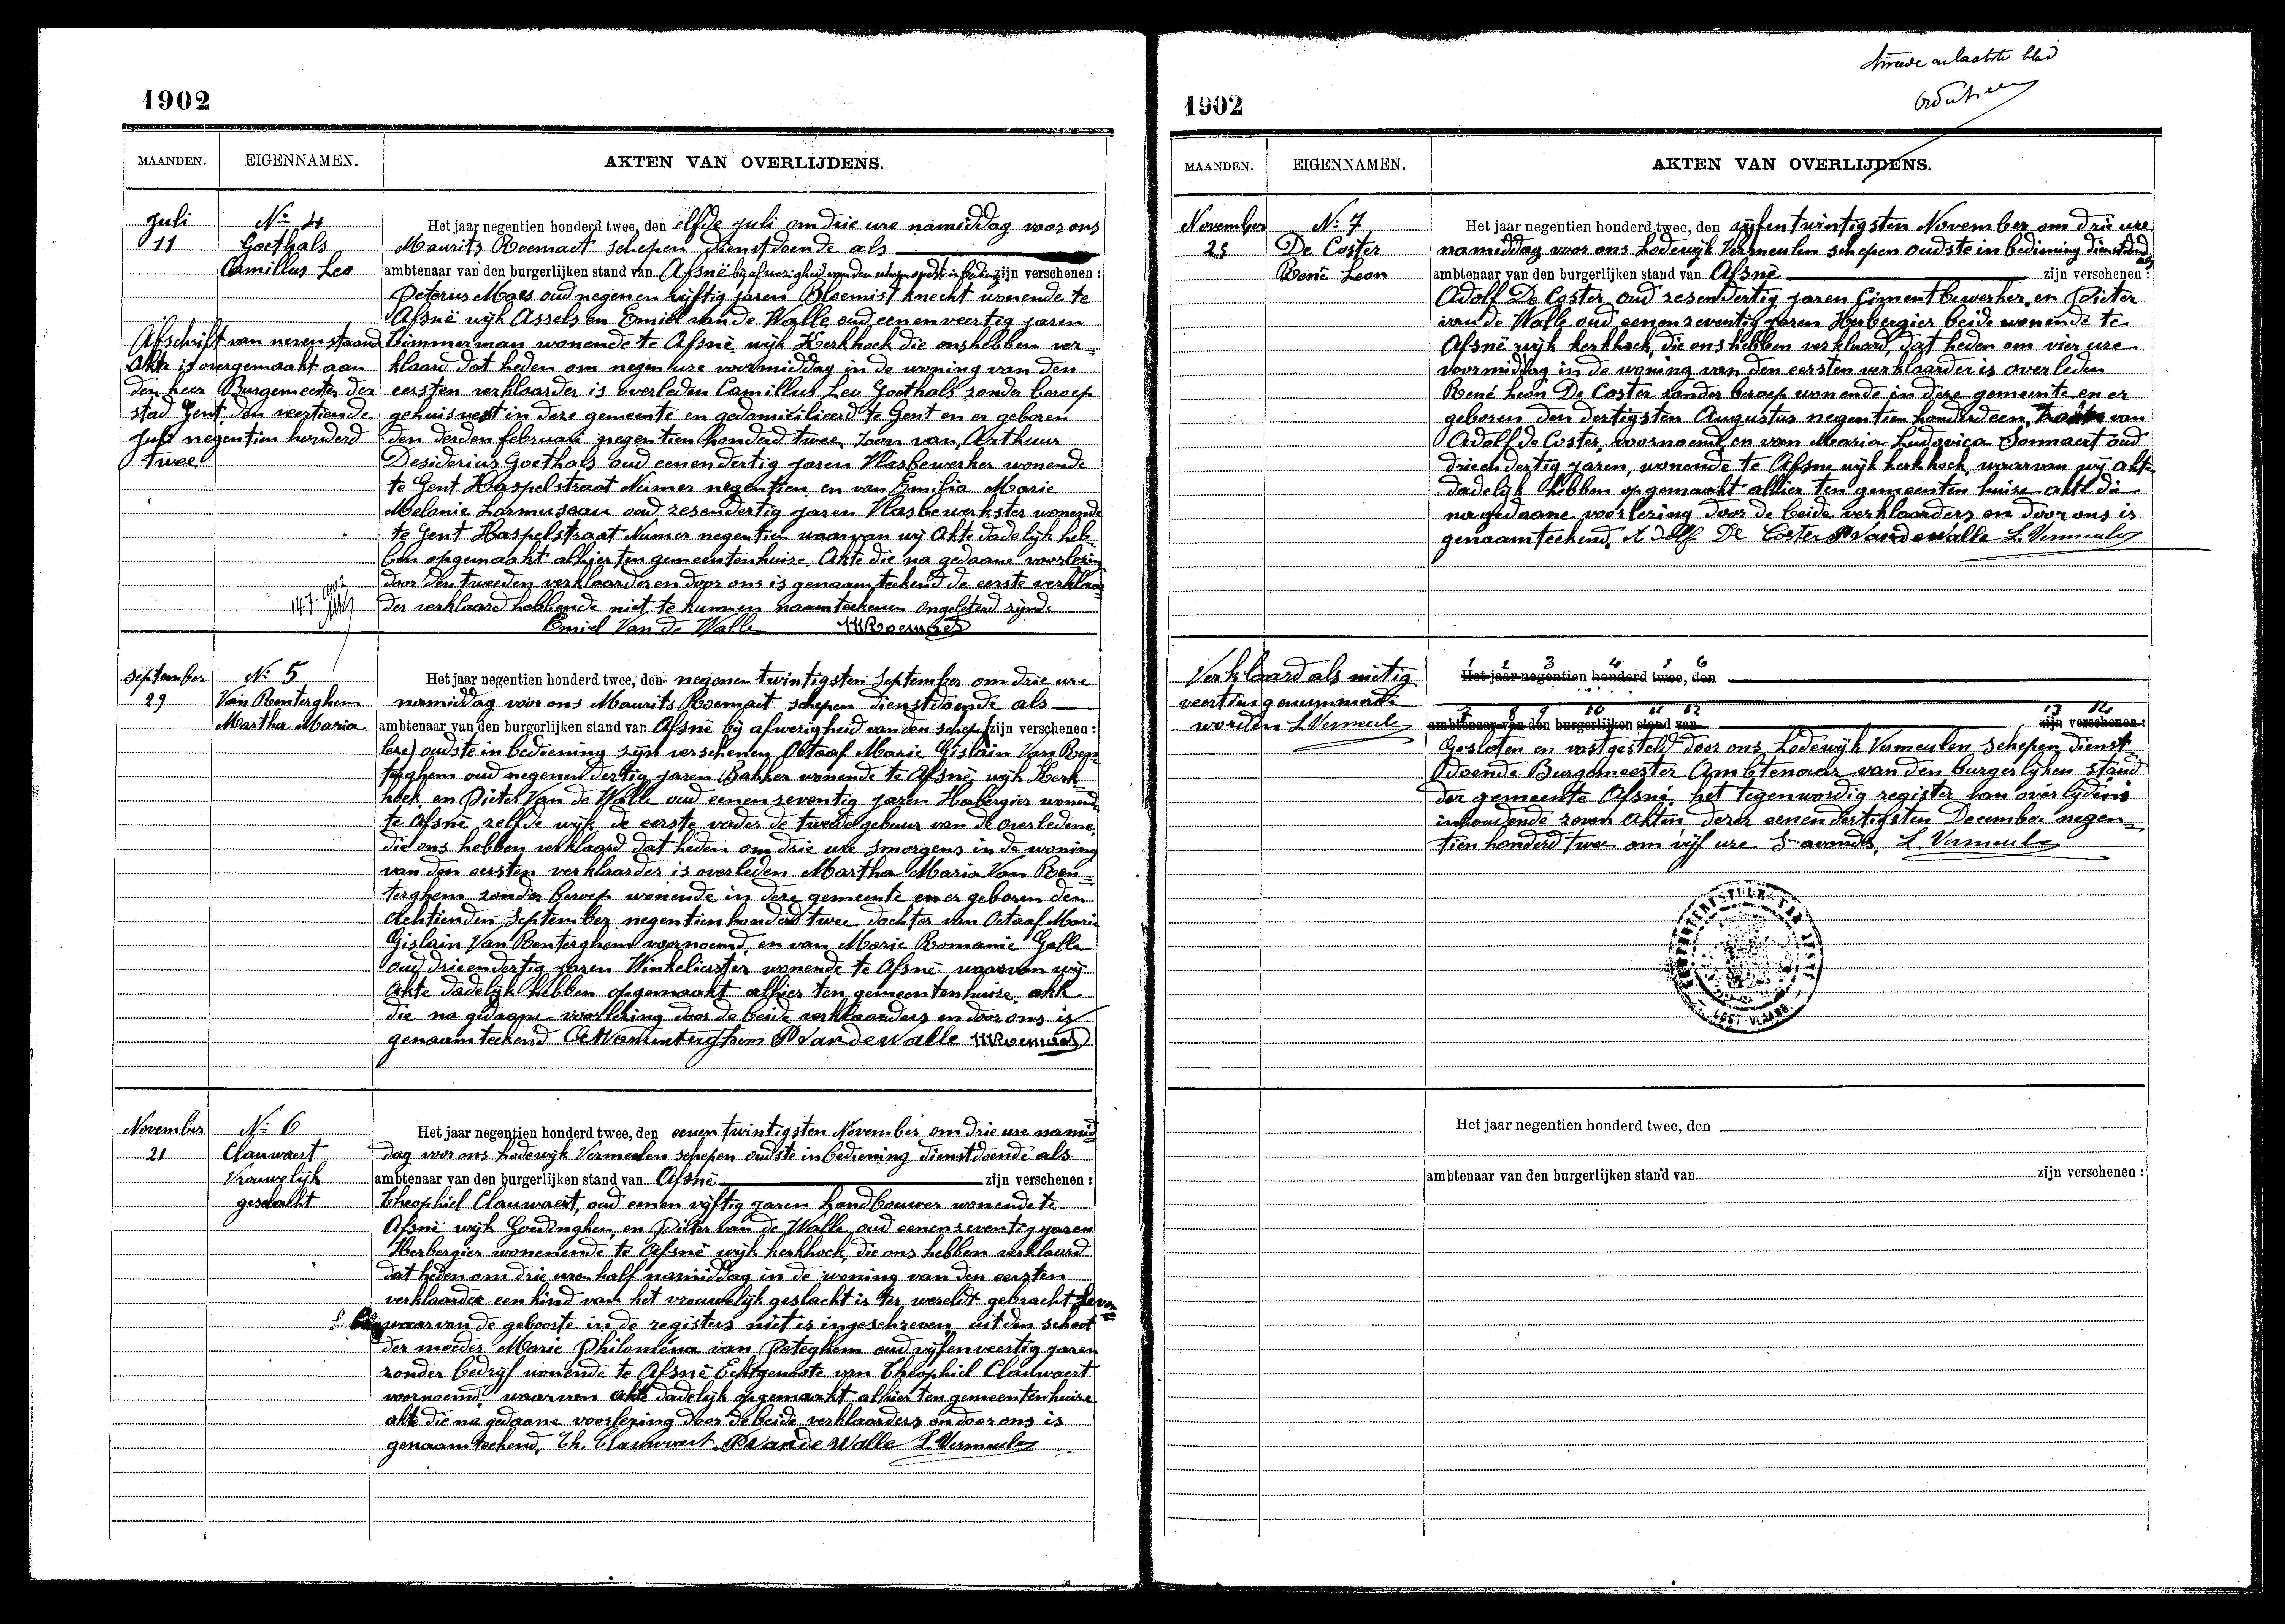 1902
MAANDEN. EIGENNAMEN. AKTEN VAN OVERLIJDENS.
Juli
11
No 4
Goethals
Camillus Leo
Afschrift van nevenstaand
Akte is overgemaakt aan
den heer Burgemeester der
stad Gent den veertiende
Juli negentien honderd
twee
14-7-1902
Het jaar negentien honderd twee, den elfde juli om drie ure namiddag voor ons
Maurits Roemaet schepen dienstdoende als
ambtenaar van den burgerlijken stand van Afsnè bij afwezigheid van den schepen oudste in bediening zijn verschenen :
Peterus Maes oud negen en vijftig jaren Bloemist knecht wonende te
Afsnè wijk Assels en Emiel van de Walle oud eenenveertig jaren
Timmerman wonende te Afsnè wijk Kerkhoek die ons hebben ver-
klaard dat heden om negen ure voormiddag in de woning van den
eersten verklaarder is overleden Camillus Leo Goethals zonder beroep
gehuisvest in deze gemeente en gedomicilieerd te Gent en er geboren
den derden februari negentien honderd twee, zoon van Arthuur
Desiderius Goethals oud eenendertig jaren Vlasbewerker wonende
te Gent Haspelstraat Numer negentien en van Emilia Marie
Melanie Larmuseau oud zesendertig jaren Vlasbewerkster wonende
te Gent Haspelstraat Numer negentien waarvan wij Akte dadelijk heb-
ben opgemaakt alhier ten gemeentenhuize, Akte die na gedaane voorlezing
door den tweeden verklaarder en door ons is genaamteekend de eerste verklaar-
der verklaard hebbende niet te kunnen naamteekenen ongeletterd zijnde
Emiel Van de Walle MRoemaet
September
29
No 5
Van Renterghem
Martha Maria
Het jaar negentien honderd twee, den negenen twintigsten September om drie ure
namiddag voor ons Maurits Roemaet schepen dienstdoende als
ambtenaar van den burgerlijken stand van Afsnè bij afwezigheid van den schepen zijn verschenen :
oudste in bediening zijn verschenen Octaaf Marie Gislain Van Ren-
terghem oud negenendertig jaren Bakker wonende te Afsnè wijk Kerk
hoek en Pieter Van de Walle oud eenenzeventig jaren Herbergier wonend
te Afsnè zelfde wijk de eerste vader de tweede gebuur van de overledene,
die ons hebben verklaard dat heden om drie ure smorgens in de woning
van den eersten verklaarder is overleden Martha Maria Van Ren-
terghem zonder beroep wonende in deze gemeente en er geboren den
Achtienden September negentien honderd twee dochter van Octaaf Marie
Gislain Van Renterghem voornoemd en van Marie Romanie Galle
oud drieendertig jaren Winkelierster wonende te Afsnè waarvan wij
Akte dadelijk hebben opgemaakt alhier ten gemeentenhuize, akte
die na gedaane voorlezing door de beide verklaarders en door ons is
genaamteekend OVanrenterghem PVandewalle MRoemaet
November
21
No 6
Clauwaert
Vrouwelijk
geslacht
Het jaar negentien honderd twee, den eenen twintigsten November om drie ure namid
dag voor ons Lodewijk Vermeulen schepen oudste in bediening dienstdoende als
ambtenaar van den burgerlijken stand van Afsnè zijn verschenen :
Theophiel Clauwaert, oud eenen vijftig jaren landbouwer wonende te
Afsnè wijk Goedinghen, en Pieter van de Walle oud eenenzeventig jaren
Herbergier wonenende te Afsnè wijk kerkhoek, die ons hebben verklaard
dat heden om drie uren half namiddag in de woning van den eersten
verklaarder een kind van het vrouwelijk geslacht is ter wereldt gebracht
waarvan de geboorte in de registers niet is ingeschreven, uit den schoot
der moeder Marie Philoména van Peteghem oud vijfenveertig jaren
zonder bedrijf wonende te Afsnè Echtgenoote van Theophiel Clauwaert
voornoemd, waarvan akte dadelijk opgemaakt alhier ten gemeentenhuize
akte die na gedaane voorlezing door de beide verklaarders en door ons is
genaamteekend, Th. Clauwaert PVandewalle L. Vermeulen
tweede en laatste blad
1902
MAANDEN. EIGENNAMEN. AKTEN VAN OVERLIJDENS.
November
25
No 7
De Coster
René Leon
Het jaar negentien honderd twee, den vijfen twintigsten November om drie ure
namiddag voor ons Lodewijk Vermeulen schepen oudste in bediening dienstdoend als
ambtenaar van den burgerlijken stand van Afsnè zijn verschenen :
Adolf De Coster oud zesendertig jaren Cimentbewerker, en Pieter
van de Walle oud eenenzeventig jaren Herbergier beide wonende te
Afsnè wijk kerkhoek, die ons hebben verklaard, dat heden om vier ure
voormiddag in de woning van den eersten verklaarder is overleden
René Leon De Coster zonder beroep wonende in deze gemeente en er
geboren den dertigsten Augustus negentien honderd een, zoon van
Adolf de Coster, voornoemd en van Maria Ludovica Sonnaert oud
drieendertig jaren, wonende te Afsne wijk kerkhoek, waarvan wij akte
dadelijk hebben opgemaakt alhier ten gemeenten huize akte die
na gedaane voorlezing door de beide verklaarders en door ons is
genaamteekend, Adolf De Coster PVandewalle L. Vermeulen
Verklaard als nietig
veertien genummerde
worden L. Vermeulen
1 2 3 4 5 6
Het jaar negentien honderd twee, den
7 8 9 10 11 12 13 14
ambtenaar van den burgerlijken stand van zijn verschenen :
Gesloten en vastgesteld door ons Lodewijk Vermeulen Schepen dienst-
doende Burgemeester Ambtenaar van den burgerlijken stand
der gemeente Afsné, het tegenwordig register van overlijdens
inhoudende zeven Akten dezer eenendertigsten December negen-
tien honderd twee om vijf ure S avonds, L. Vermeulen
OOST-VLAAND.
Het jaar negentien honderd twee, den
ambtenaar van den burgerlijken stand van zijn verschenen :